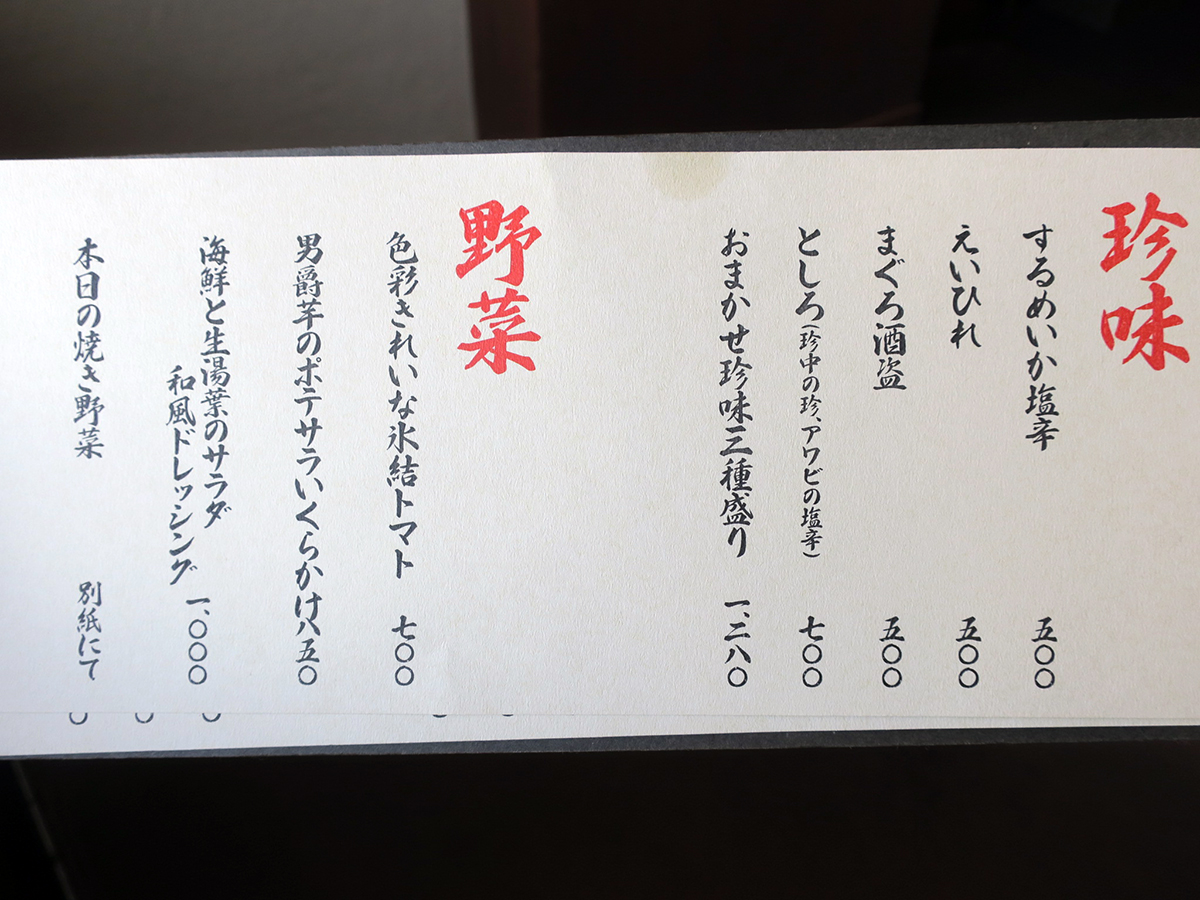 珍味
するめいか塩辛 五〇〇
えいひれ 五〇〇
まぐろ酒盗 五〇〇
としろ(珍中の珍、アワビの塩辛) 七〇〇
おまかせ珍味三種盛り 一、二八〇
野菜
色彩きれいな氷結トマト 七〇〇
男爵芋のポテサラいくらかけ 八五〇
海鮮と生湯葉のサラダ
和風ドレッシング 一、〇〇〇
本日の焼き野菜 別紙にて